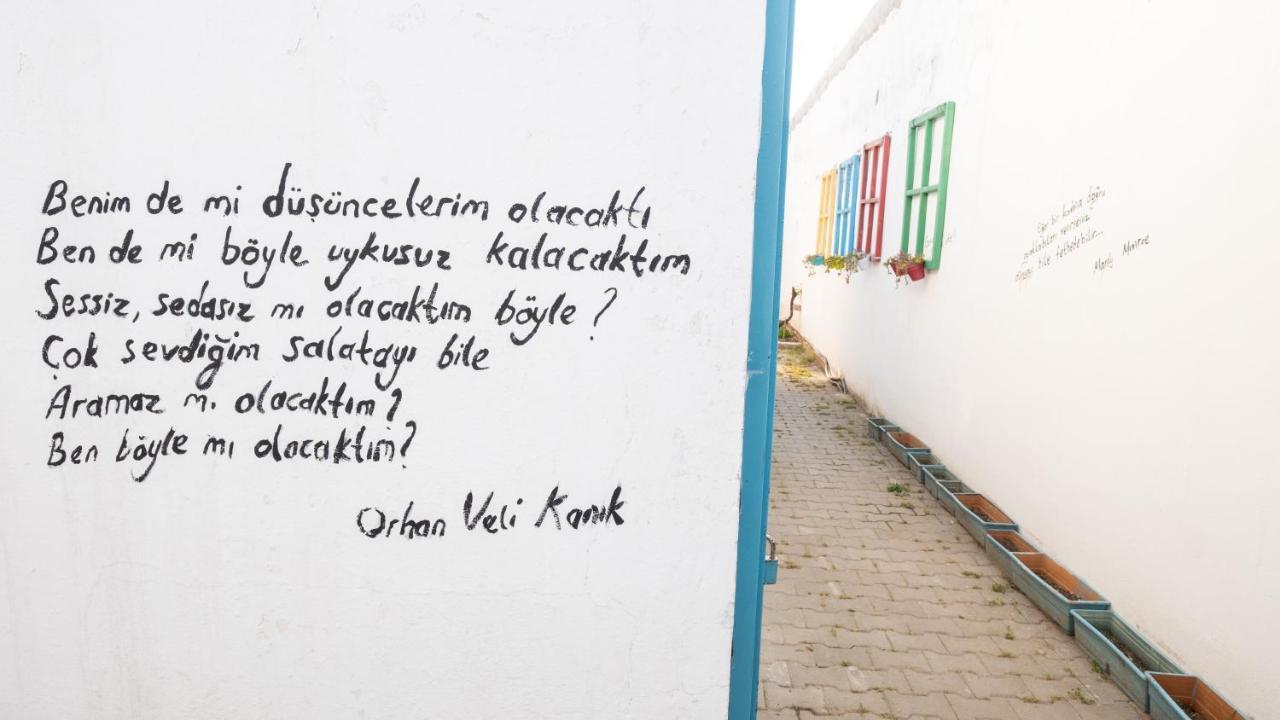 Benim de mi düşüncelerim olacaktı
Ben de mi böyle uykusuz kalacaktım
Sessiz, sedasız mı olacaktım böyle?
Çok sevdiğim salatayı bile
Aramaz mı olacaktım?
Ben böyle mı olacaktım?
Orhan Veli Kanık
Eğer bir kadına doğru
bile fethedebilir...